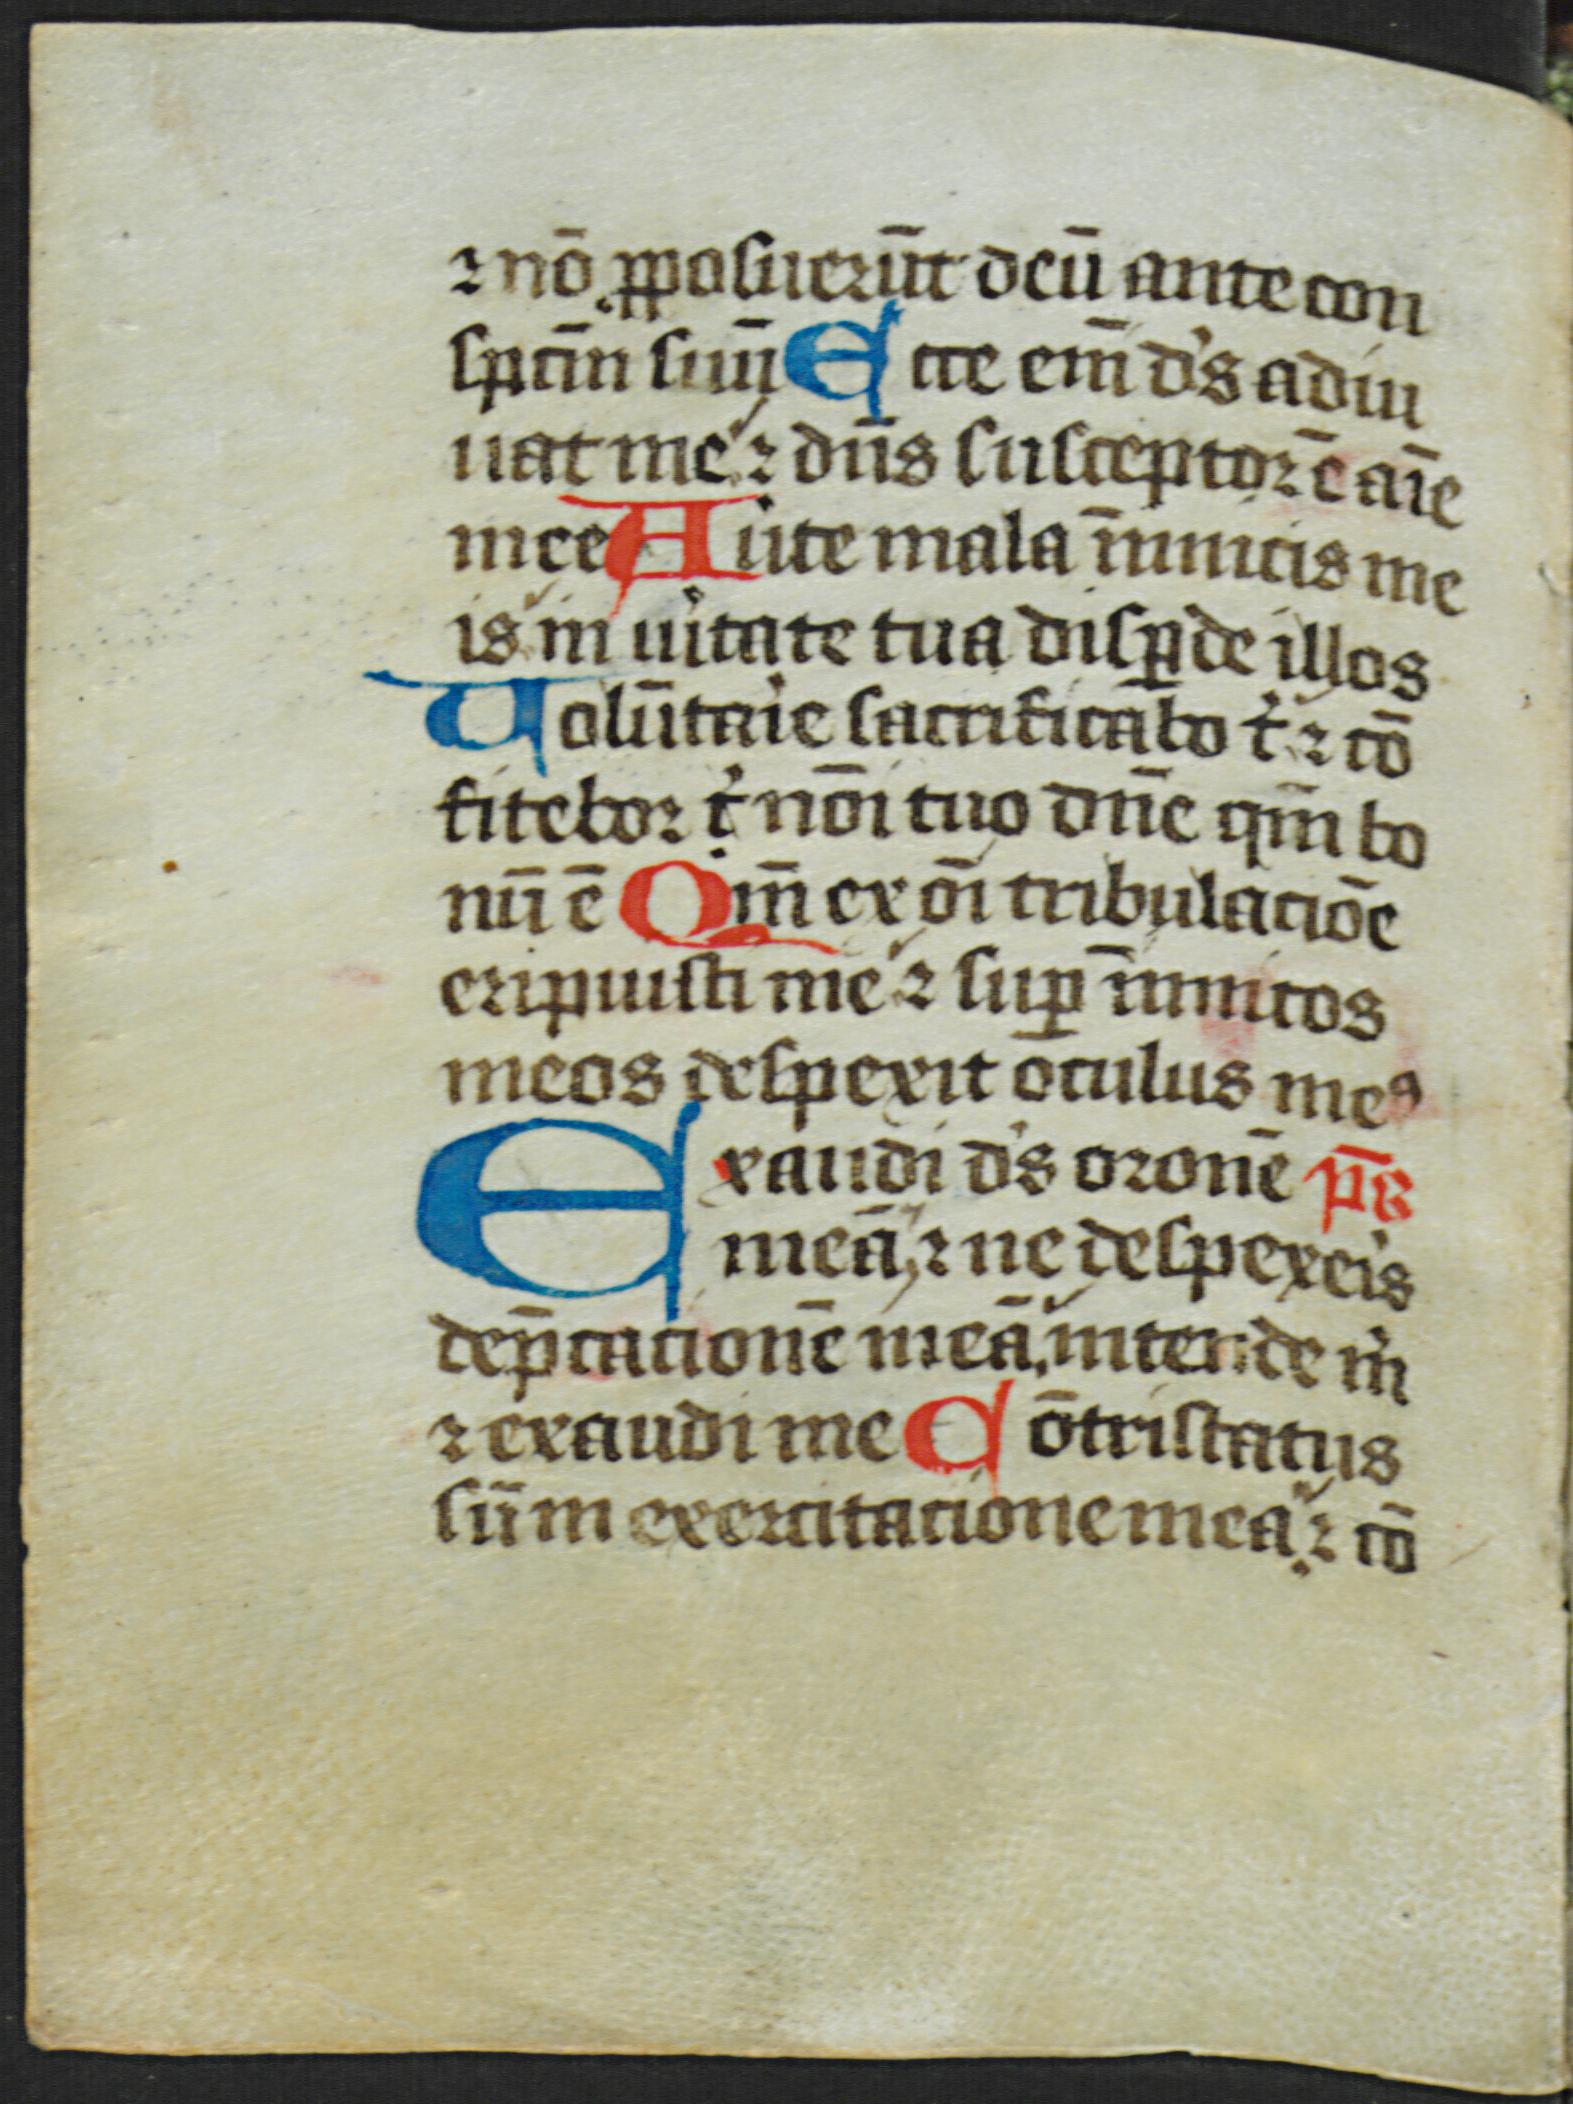 ⁊ nō ꝓposuerūt deū ante con
spcm̄ suū Ecce em̄ d's adiu
uat me ⁊ dn̄s susceptor ē aīe
mee Auͥte mala īnimicis me
is in uͥitate tua disꝑde illos
Uolūtaͥe sacrificābo tͥ ⁊ cō
fitebor tͥ nōi tuo dn̄e qm̄ bo
nū ē Qm̄ ex oī tribulaciōe
eripuisti me ⁊ suꝑ īnimicos
meos despexit oculus meꝰ
Exaudi d's oronē pͫs
meā ⁊ ne despexeͥis
dep̄cacionē meā intende mͥ
⁊ exaudi me Cōtristatus
sū in exercitacione mea ⁊ cō